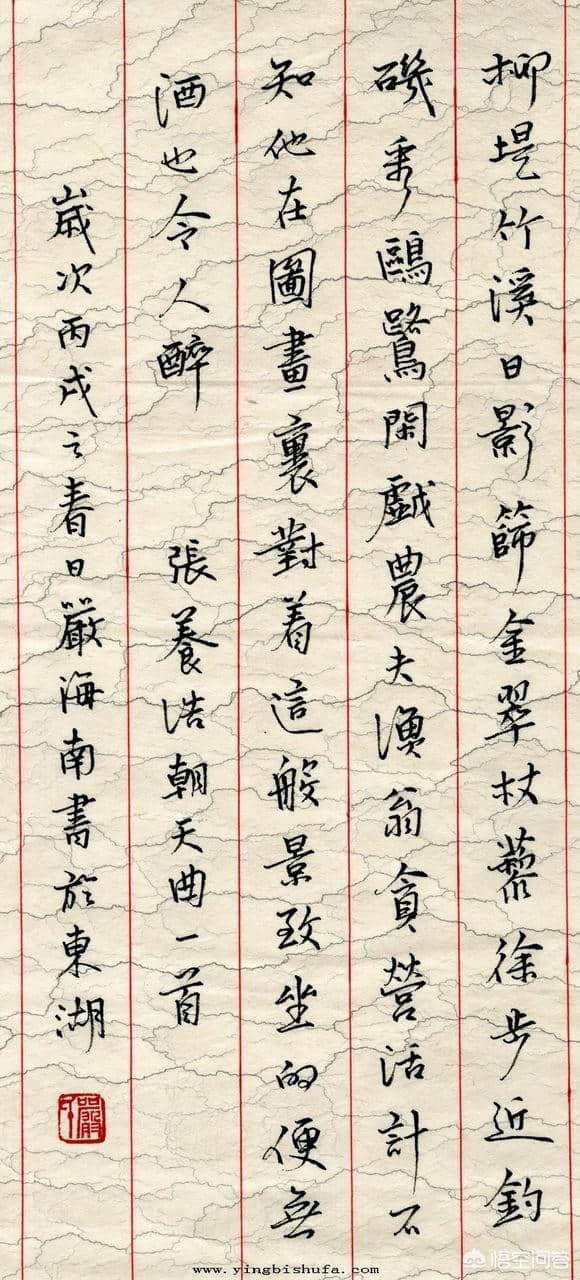 柳堤竹溪日影篩金翠杖藜徐步近釣
磯看鷗鷺閑戲農夫漁翁貪營活計不
知他在圖畫裏對着這般景致坐的便無
酒也令人醉 張養浩朝天曲一首
歲次丙戌之春日嚴海南書於東湖
www.yingbishufa.com
悟空问答